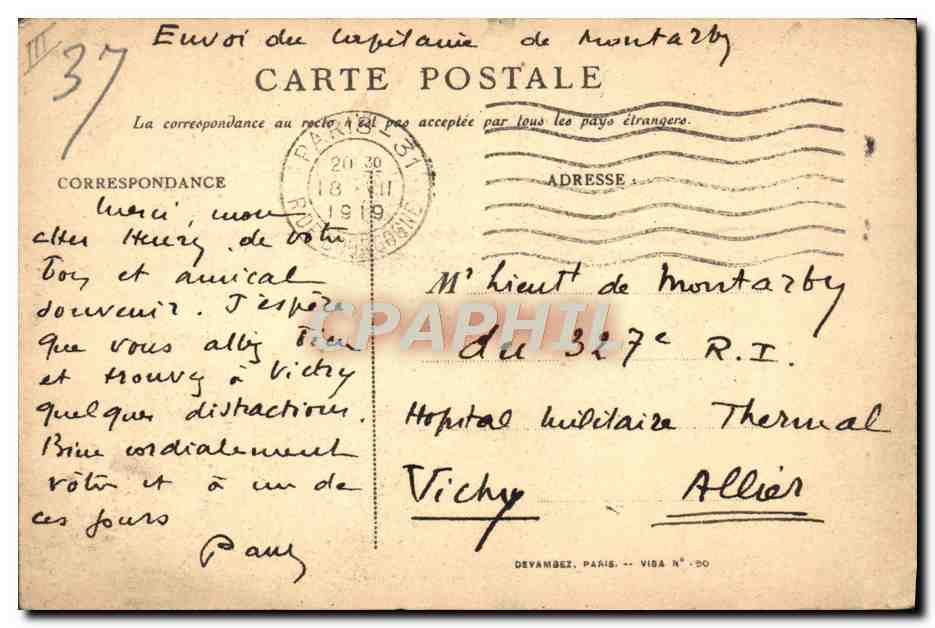 III
37
Envoi du Capitaine de Montarby
CARTE POSTALE
La correspondance au recto n'est pas acceptée par tous les pays étrangers.
PARIS - 31
20 30
18 - II
1919
R. DE BOURGOGNE
CORRESPONDANCE
ADRESSE :
Merci, mon
cher Henry, de votre
bon et amical
souvenir. J'espère
que vous allez bien
et trouvez à Vichy
quelques distractions.
Bien cordialement
vôtre et à un de
ces jours
Mr Lieutt de Montarby
du 327e R.I.
Hopital Militaire Thermal
Vichy Allier
DEVAMBEZ, PARIS. -- VISA N° -90
CPAPHIL